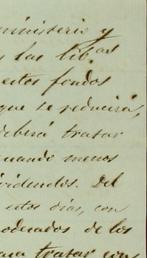 ministerio y
las lib.as
estos fondos
que se reducirá,
deberá tratar
cuando menos
videndos. Del
estos dias, con
oderados de los
tratar con